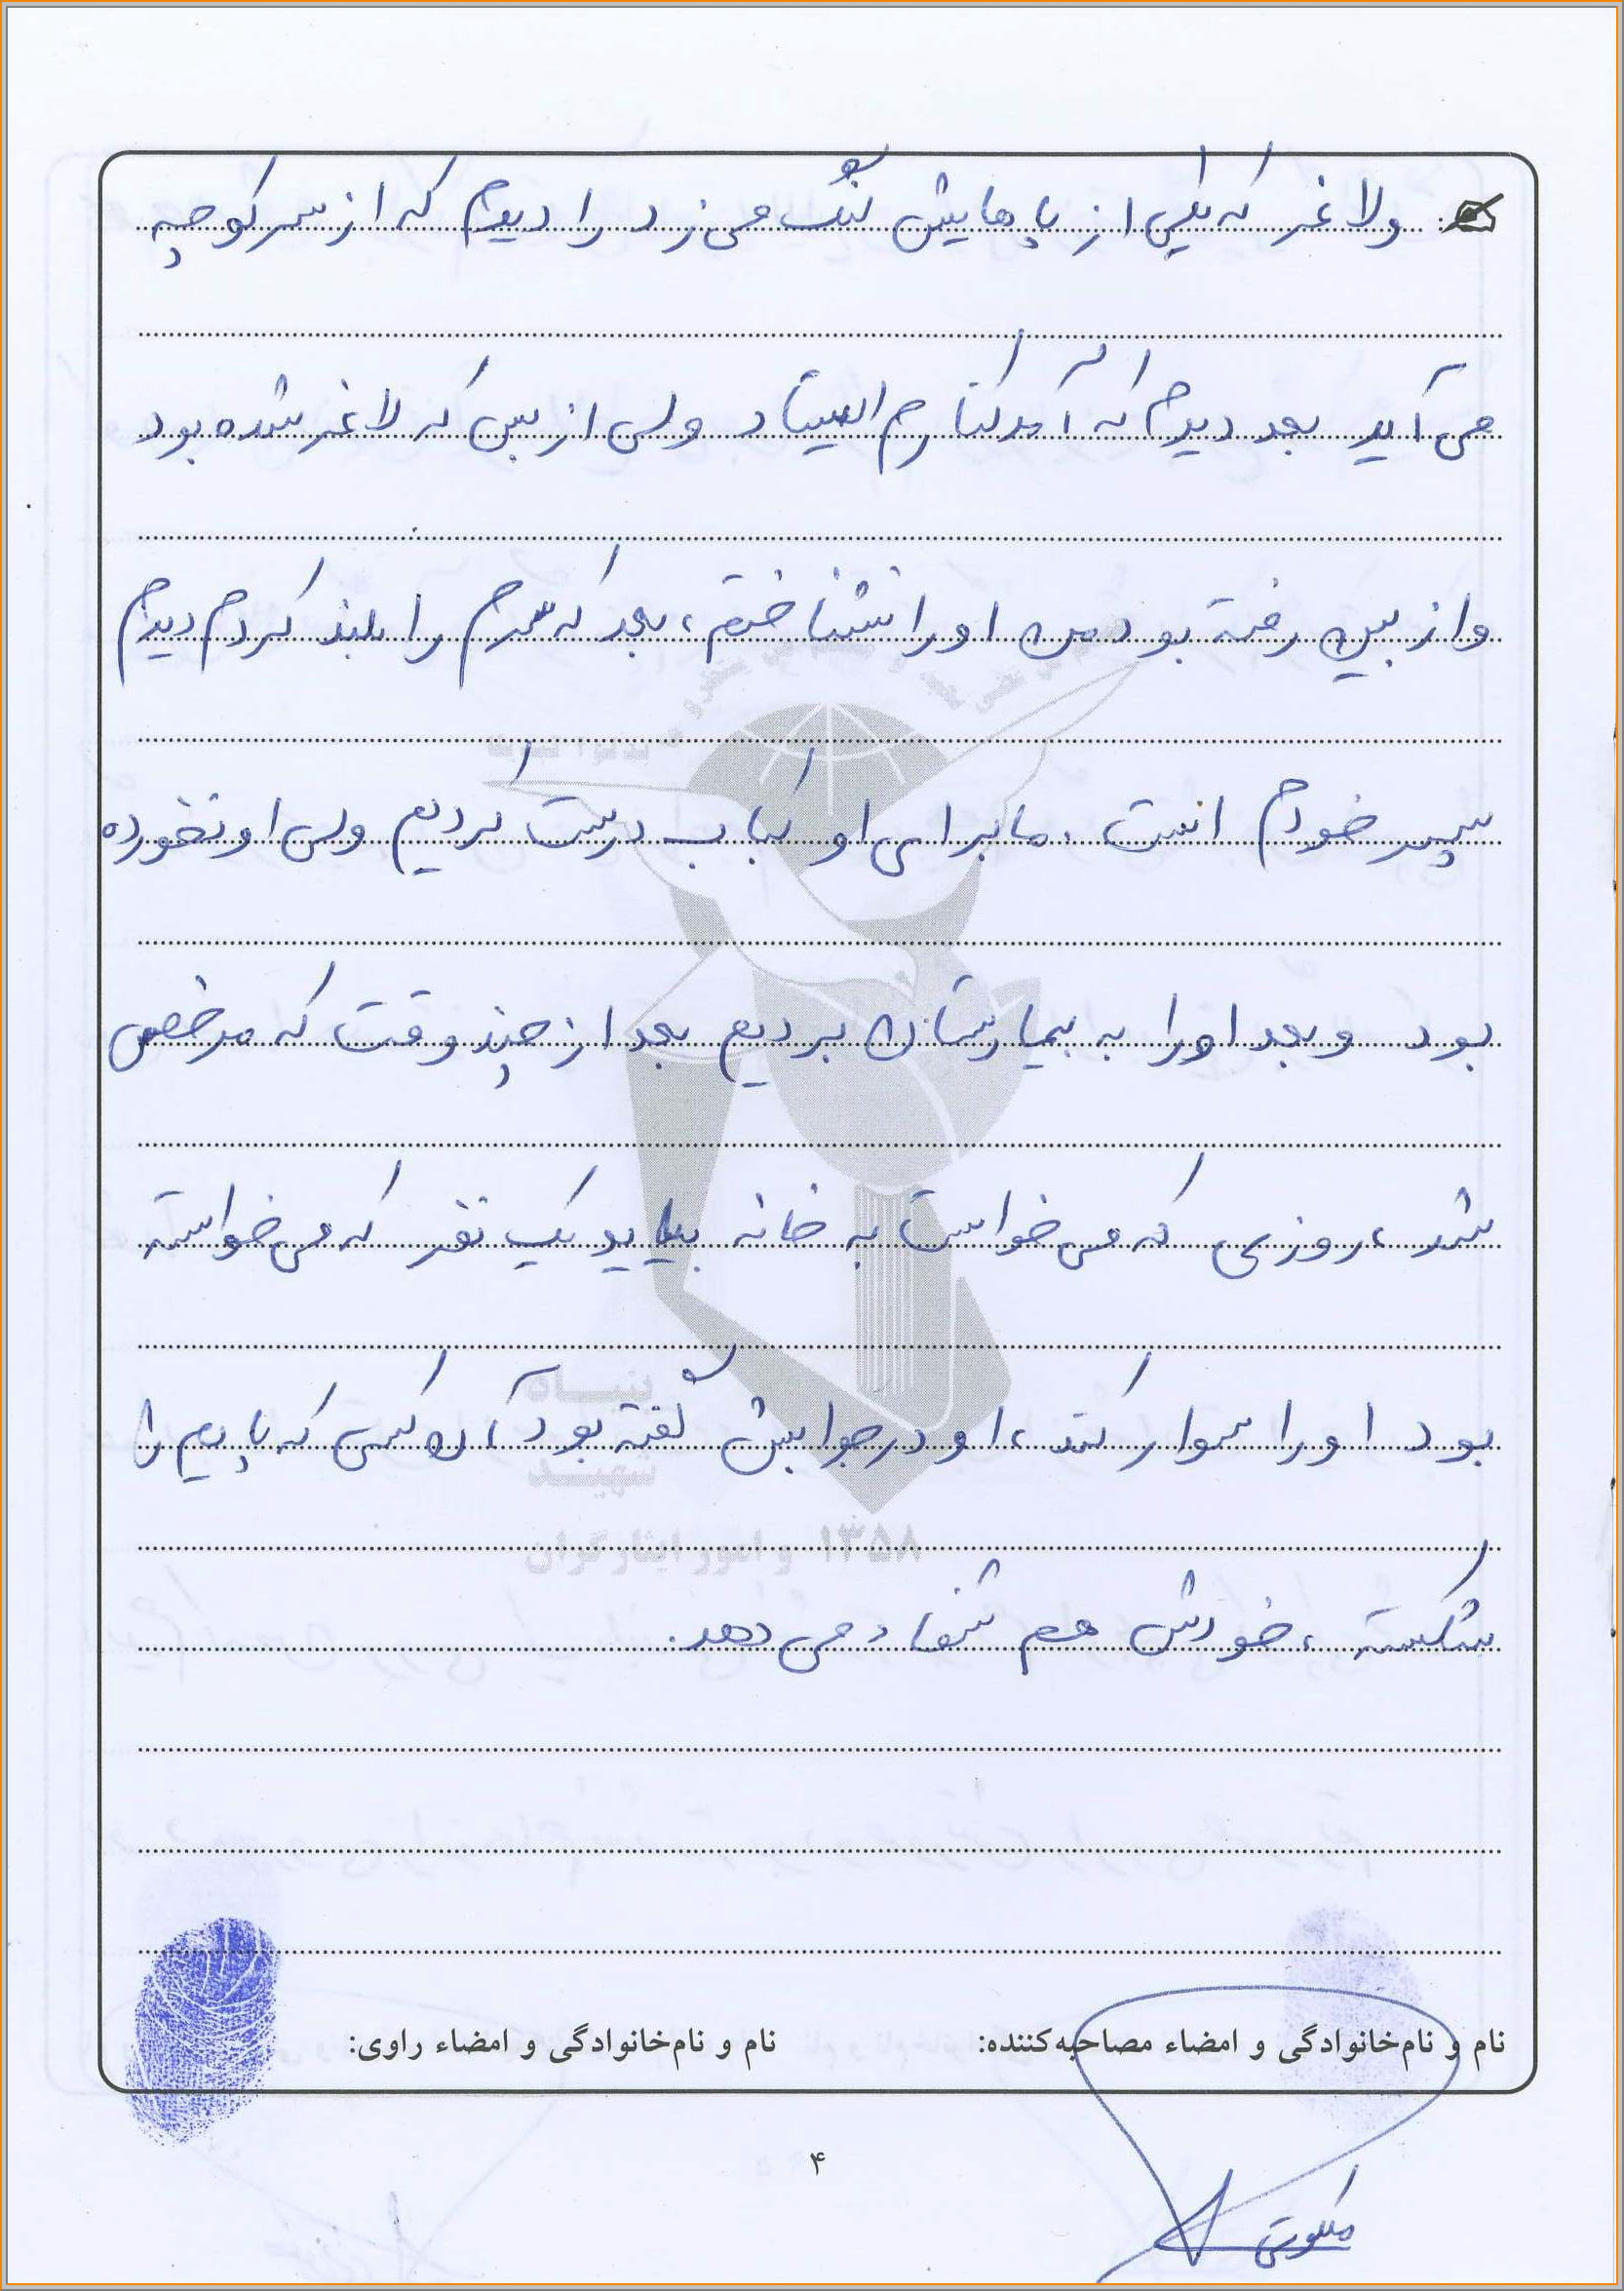 ولاغر که یکی از پاهایش لنگ می‌زد را دیدم که از سر کوچه
می آید بعد دیدم که آمد کنارم ایستاد ولی از بس که لاغر شده بود
و از بین رفته بود من او را نشناختم، بعد که سرم را بلند کردم دیدم
پسر خودم است. ما برای او کباب درست کردیم ولی او نخورده
بود و بعد او را به بیمارستان بردیم بعد از چند وقت که مرخص
شد، روزی که می خواست به خانه بیاید یک نفر که می خواسته
بود او را سوار کند، او در جوابش گفته بود آن کسی که پایم را
شکسته، خودش هم شفا می دهد.
بنیاد
شهید
و امور ایثارگران ۱۳۵۸
نام و نام‌خانوادگی و امضاء مصاحبه‌کننده: نام و نام‌خانوادگی و امضاء راوی:
۴
ملکوتی